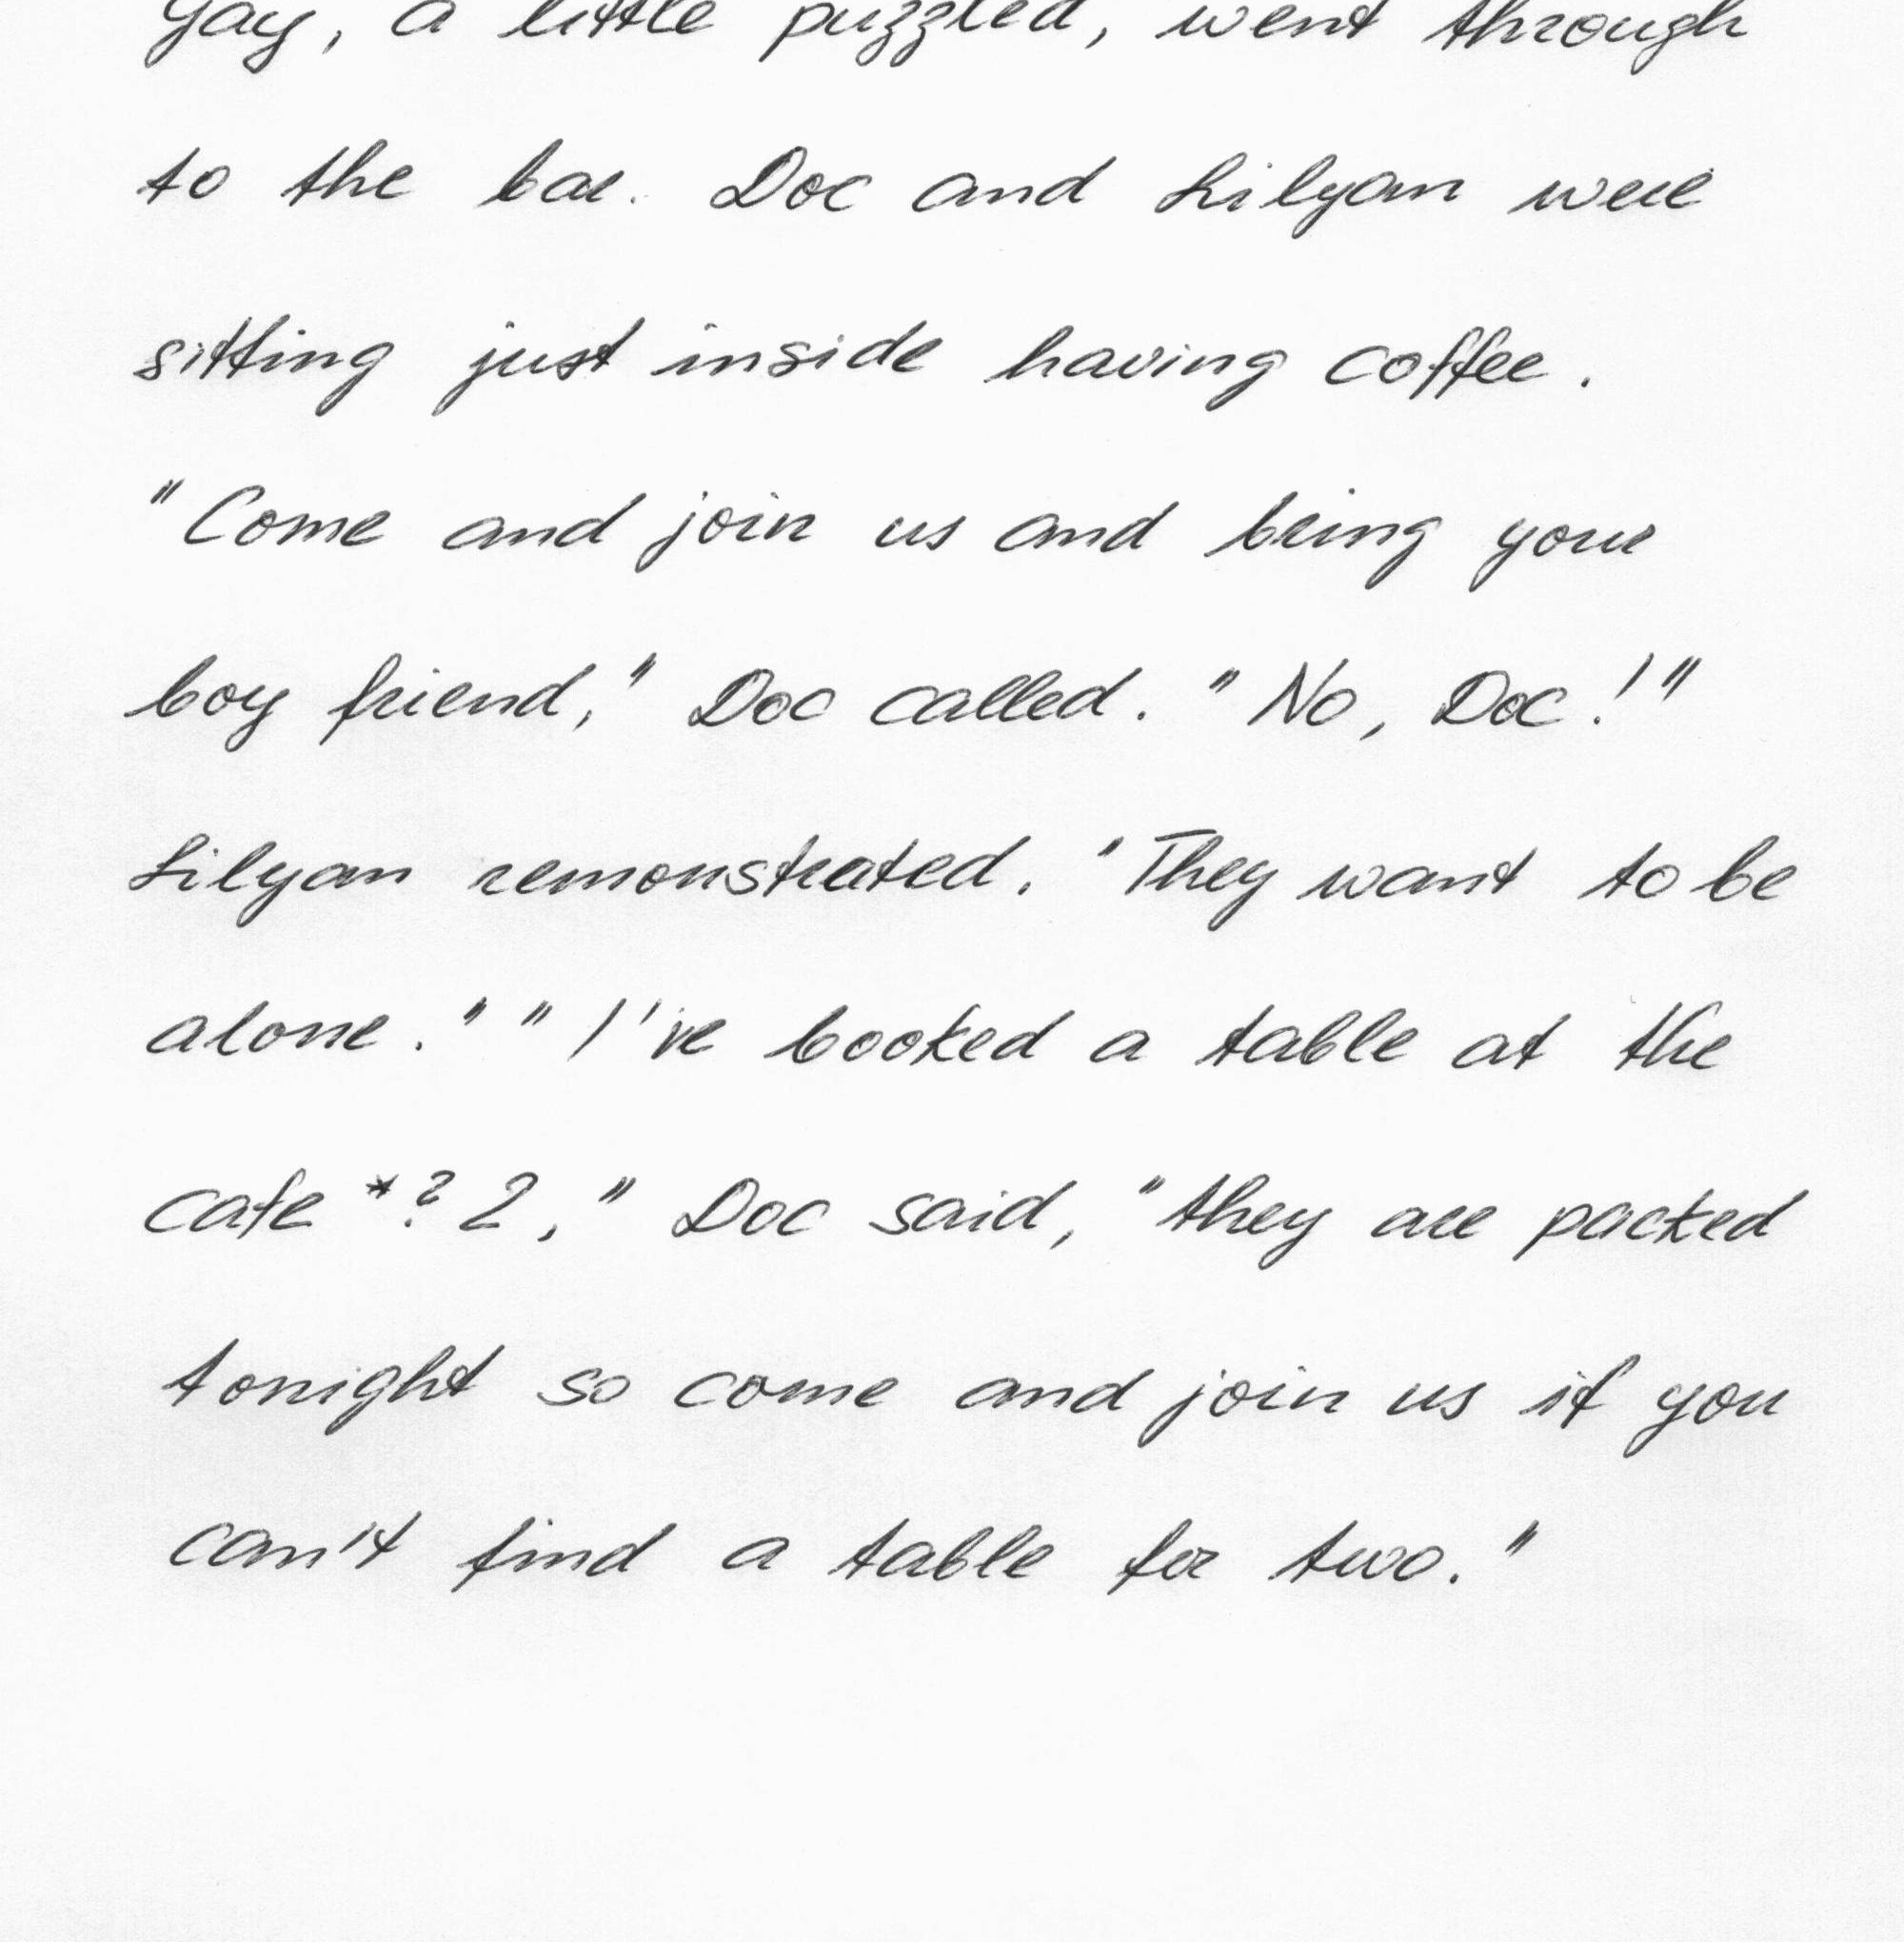 Gay, a little puzzled, went through
to the bar. Doc and Lilyan were
sitting just inside having coffee.
"Come and join us and bring your
boy friend," Doc called. "No, Doc!"
Lilyan remonstrated. "They want to be
alone." "I've booked a table at the
cafe *?2," Doc said, "they are packed
tonight so come and join us if you
can't find a table for two."